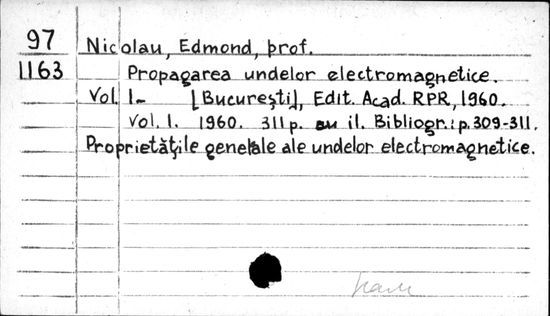 97 Nicolau, Edmond, prof.
1163 Propagarea undelor electromagnetice.
Vol. I- [București], Edit. Acad. RPR, 1960.
Vol. I. 1960. 311 p. cu il. Bibliogr.: p. 309-311.
Proprietățile generale ale undelor electromagnetice.